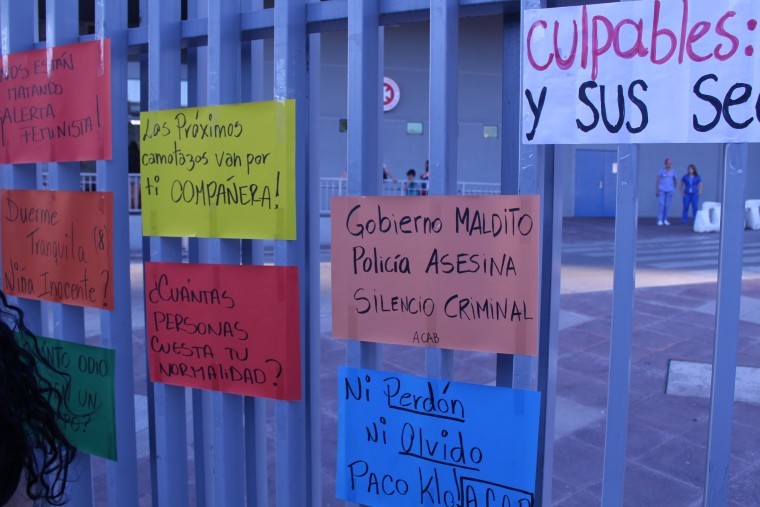 NOS ESTÁN
MATANDO
¡ALERTA
FEMINISTA!
Las Próximos
camotazos van por
ti COMPAÑERA!
Culpables:
y sus
Duerme
Tranquila
Niña Inocente?
¿CUÁNTAS
PERSONAS
CUESTA TU
NORMALIDAD?
Gobierno MALDITO
Policía ASESINA
SILENCIO CRIMINAL
ACAB
ODIO
UN
Ni Perdón
Ni Olvido
PACO Klo! ACAB